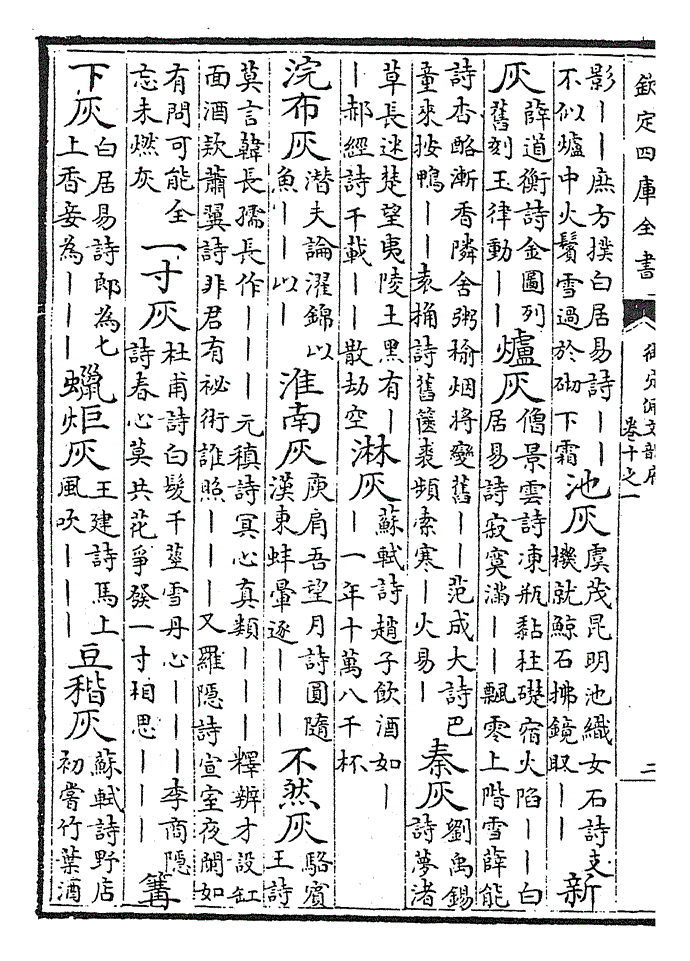 欽定四庫全書
御定佩文韻府
卷十之一
二
影丨丨庶方撲白居易詩丨丨
不似爐中火鬢雪過於砌下霜
池灰
虞茂昆明池織女石詩支
機就鯨石拂鏡取丨丨
新
灰
薛道衡詩金圖列
舊刻玉律動丨丨
爐灰
僧景雲詩凍瓶黏柱礎宿火陷丨丨白
居易詩寂寞滿丨丨飄零上階雪薛能
詩杏酪漸香隣舍粥榆烟將變舊丨丨范成大詩巴
童來按鴨丨丨袁桷詩舊篋裘頻索寒丨火易丨
秦灰
劉禹錫
詩夢渚
草長迷楚望夷陵土黑有丨
丨郝經詩千載丨丨散劫空
淋灰
蘇軾詩趙子飲酒如丨
丨一年十萬八千杯
浣布灰
潛夫論濯錦以
魚丨丨以丨
淮南灰
庾肩吾望月詩圓隨
漢東蚌暈逐丨丨丨
不然灰
駱賓
王詩
莫言韓長孺長作丨丨丨元稹詩冥心真類丨丨丨釋辨才設缸
面酒欵蕭翼詩非君有祕術誰照丨丨丨又羅隱詩宣室夜闌如
有問可能全
忘未燃灰
一寸灰
杜甫詩白髮千莖雪丹心丨丨丨李商隱
詩春心莫共花爭發一寸相思丨丨丨
篝
下灰
白居易詩郎為七
上香妾為丨丨丨
蠟炬灰
王建詩馬上
風吹丨丨丨
豆稭灰
蘇軾詩野店
初嘗竹葉酒